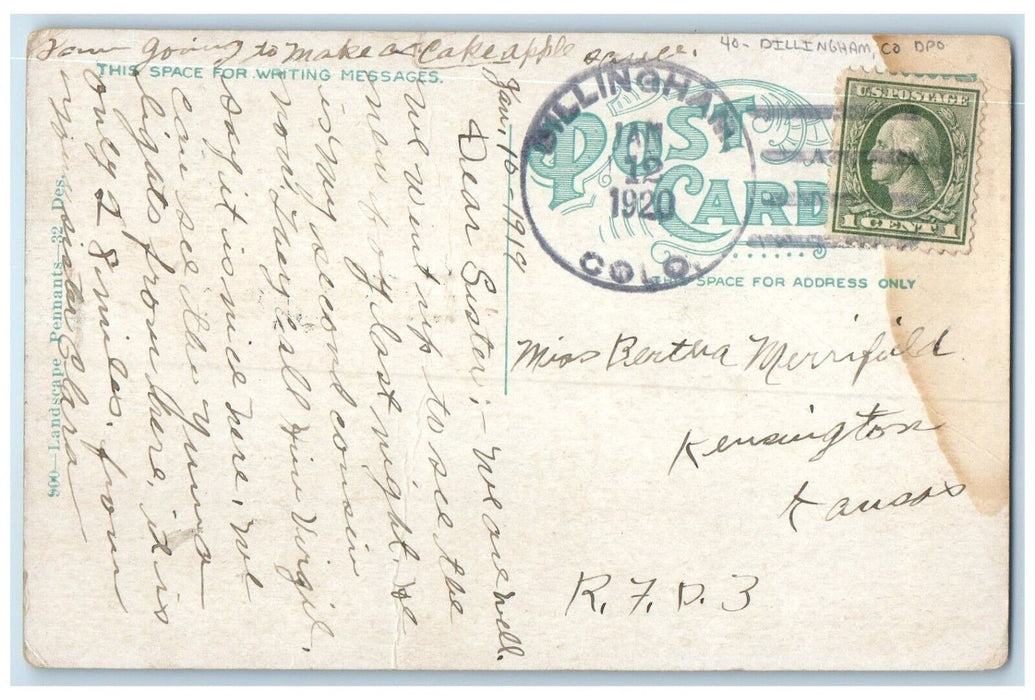 I am going to make a cake apple sauce.
40- DILLINGHAM, CO DPO
THIS SPACE FOR WRITING MESSAGES.
POST CARD
THIS SPACE FOR ADDRESS ONLY
DILLINGHAM
JAN
12
1920
COLO.
U.S. POSTAGE
1 CENT 1
Jan, 10-1919
Dear Sister;- We are well.
We went up to see the
new boy last night. He
is my second cousin
now. They call him Virgil.
say it is nice here. We
can see the Yuma
lights from here, it is
only 28 miles. from
your sister Clara
900—Landscape Pennants—32 Des.
Miss Bertha Merrifield
Kensington
Kansas
R.F.D. 3